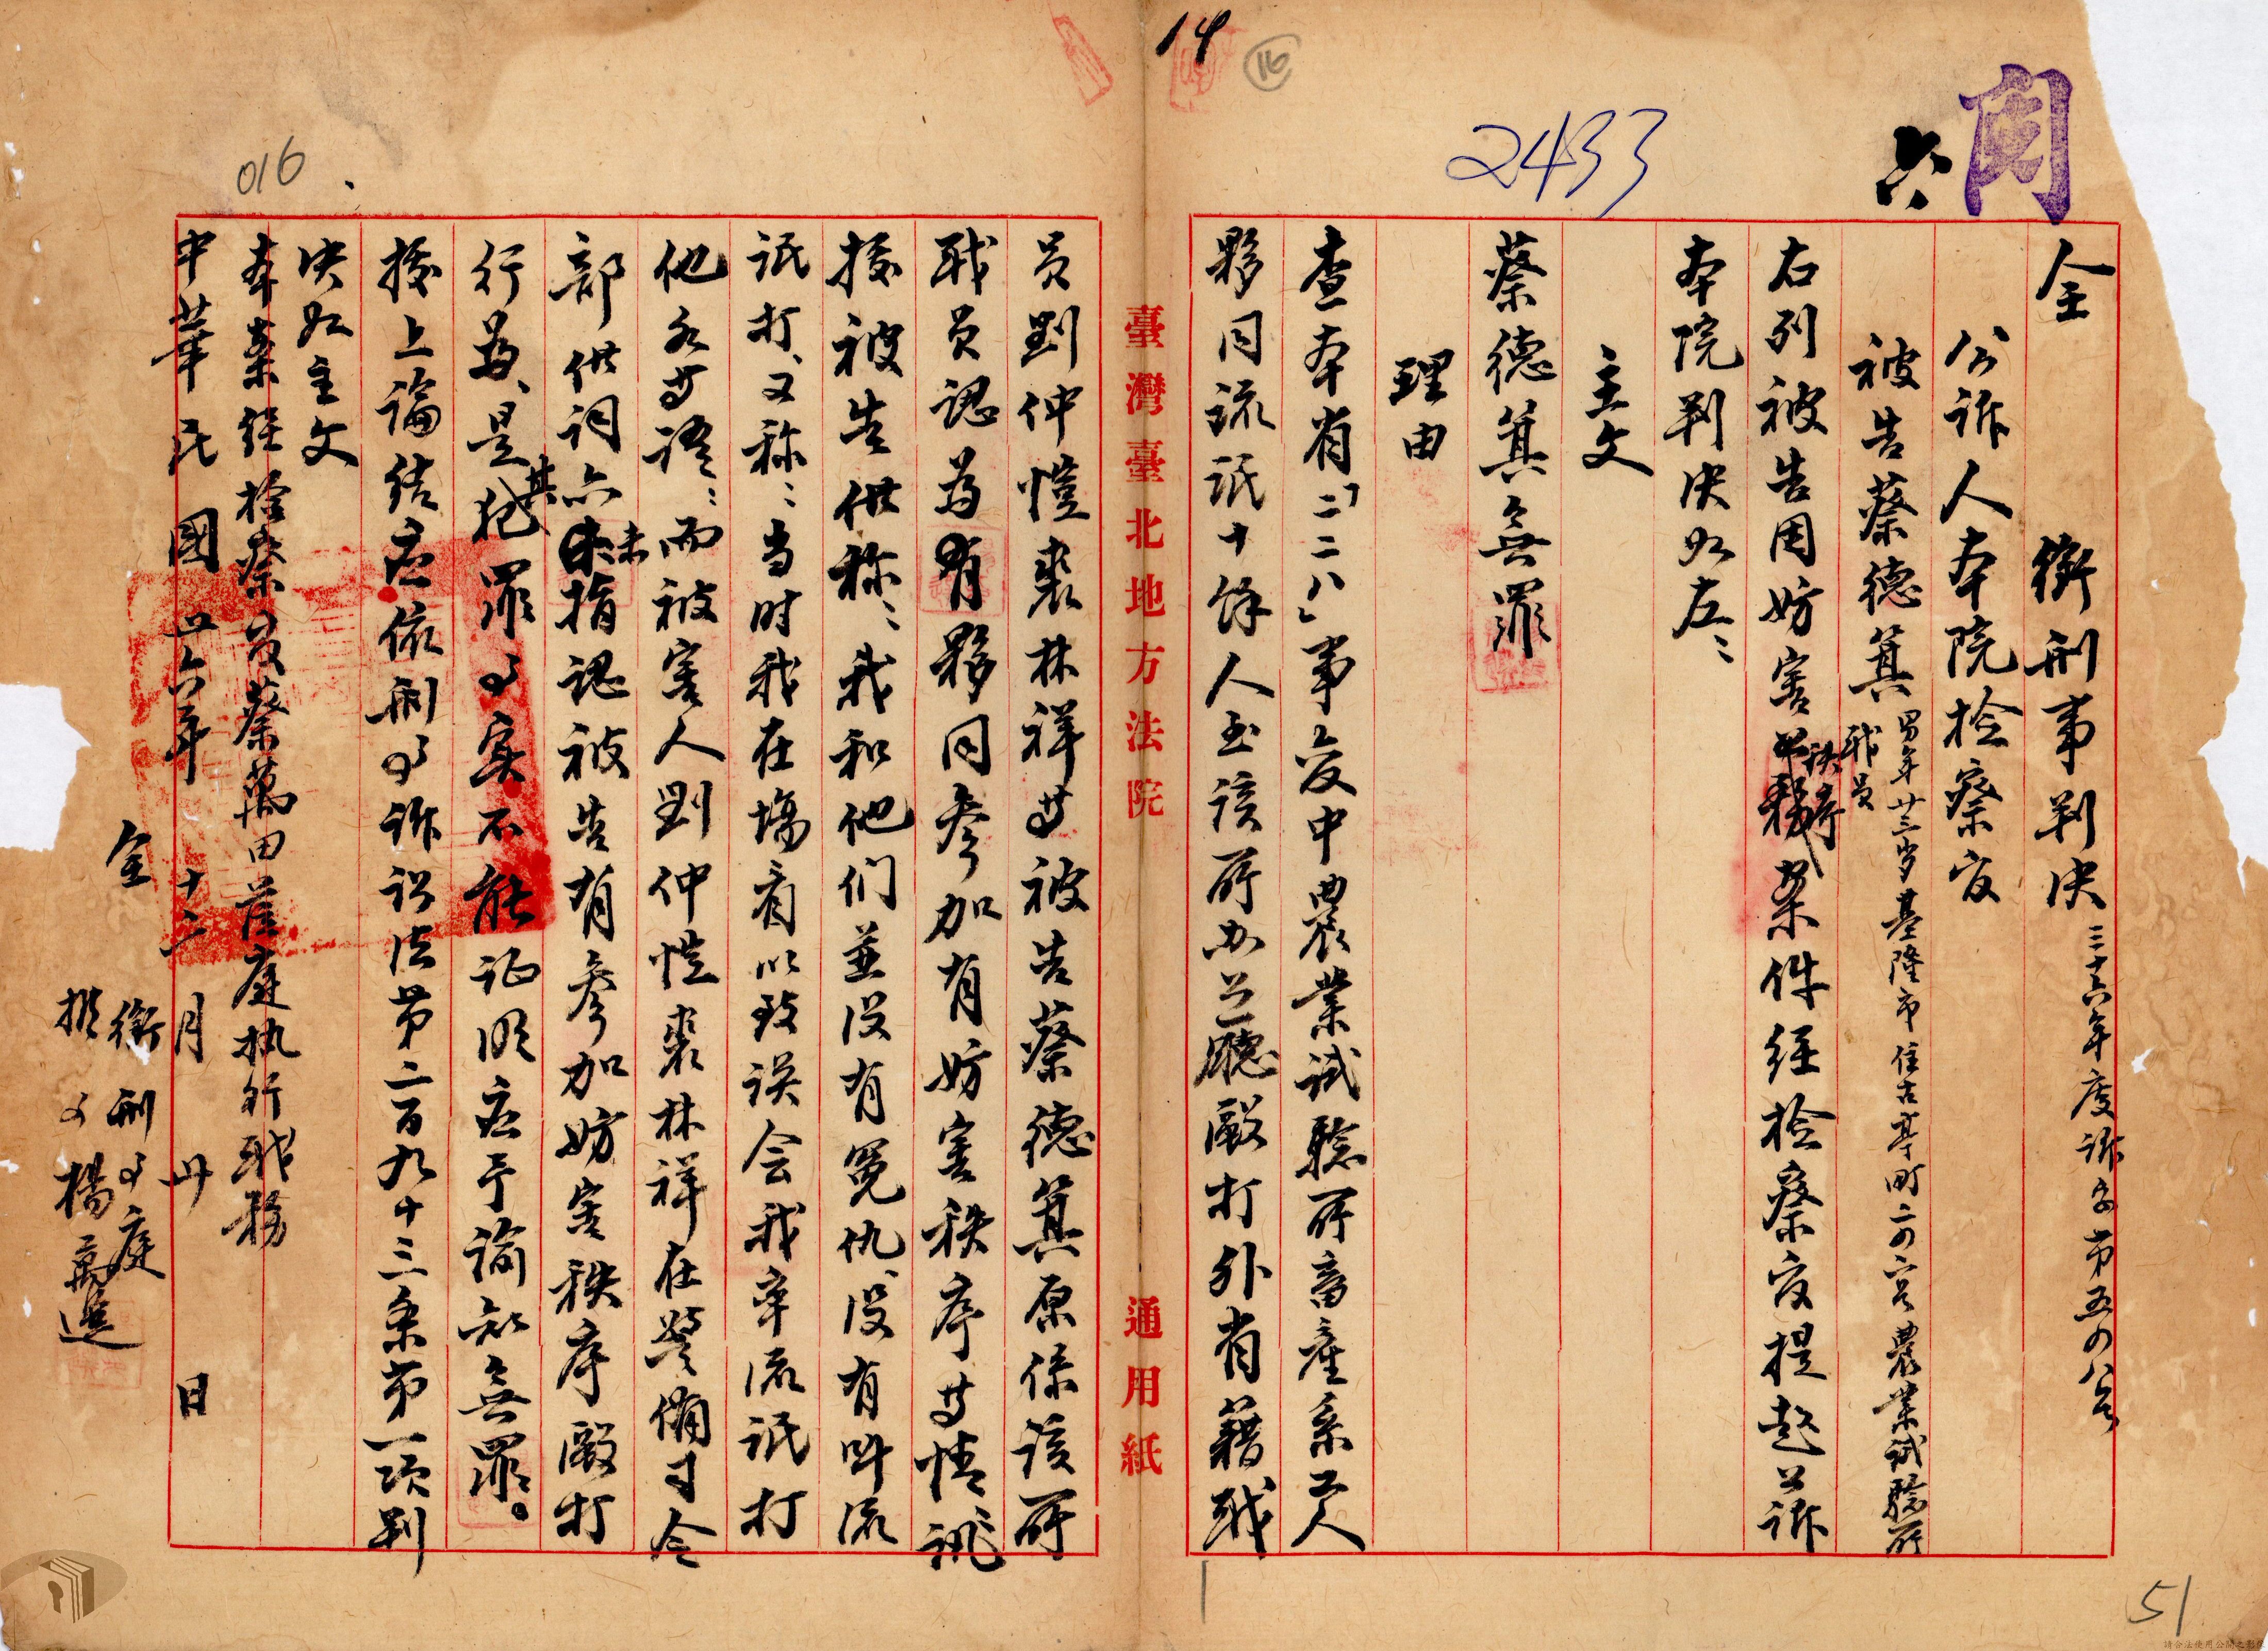 14
16
2433
六
全 銜刑事判決 三十六年度訴字第五四八号
公訴人本院檢察官
被告蔡德箕 男年廿三岁基隆市住古亭町二四六号農業試驗所
職員
右列被告因妨害秩序案件経检察官提起公訴
本院判決如左:
主文
蔡德箕無罪
理由
查本省「二二八」事变中農業試驗所畜産系工人
夥同流氓十餘人至該所办公廳毆打外省籍職
臺灣臺北地方法院 通用紙
員劉仲愷裘林祥等被告蔡德箕原係該所
职員認為有夥同參加有妨害秩序等情訊
據被告供称:我和他们並没有冤仇,没有叫流
氓打、又称:当时我在場看以致误会我率流氓打
他们等语:而被害人劉仲愷裘林祥在警備司令
部供詞亦未指認被告有參加妨害秩序毆打
行為、是其犯罪事实不能证明应予諭知無罪。
據上論结应依刑事訴訟法第二百九十三条第一項判
决如主文
本案经检察官蔡萬田蒞庭执行职務
中華民國卅六年十二月卅日
全銜刑事庭
推事楊
016
51